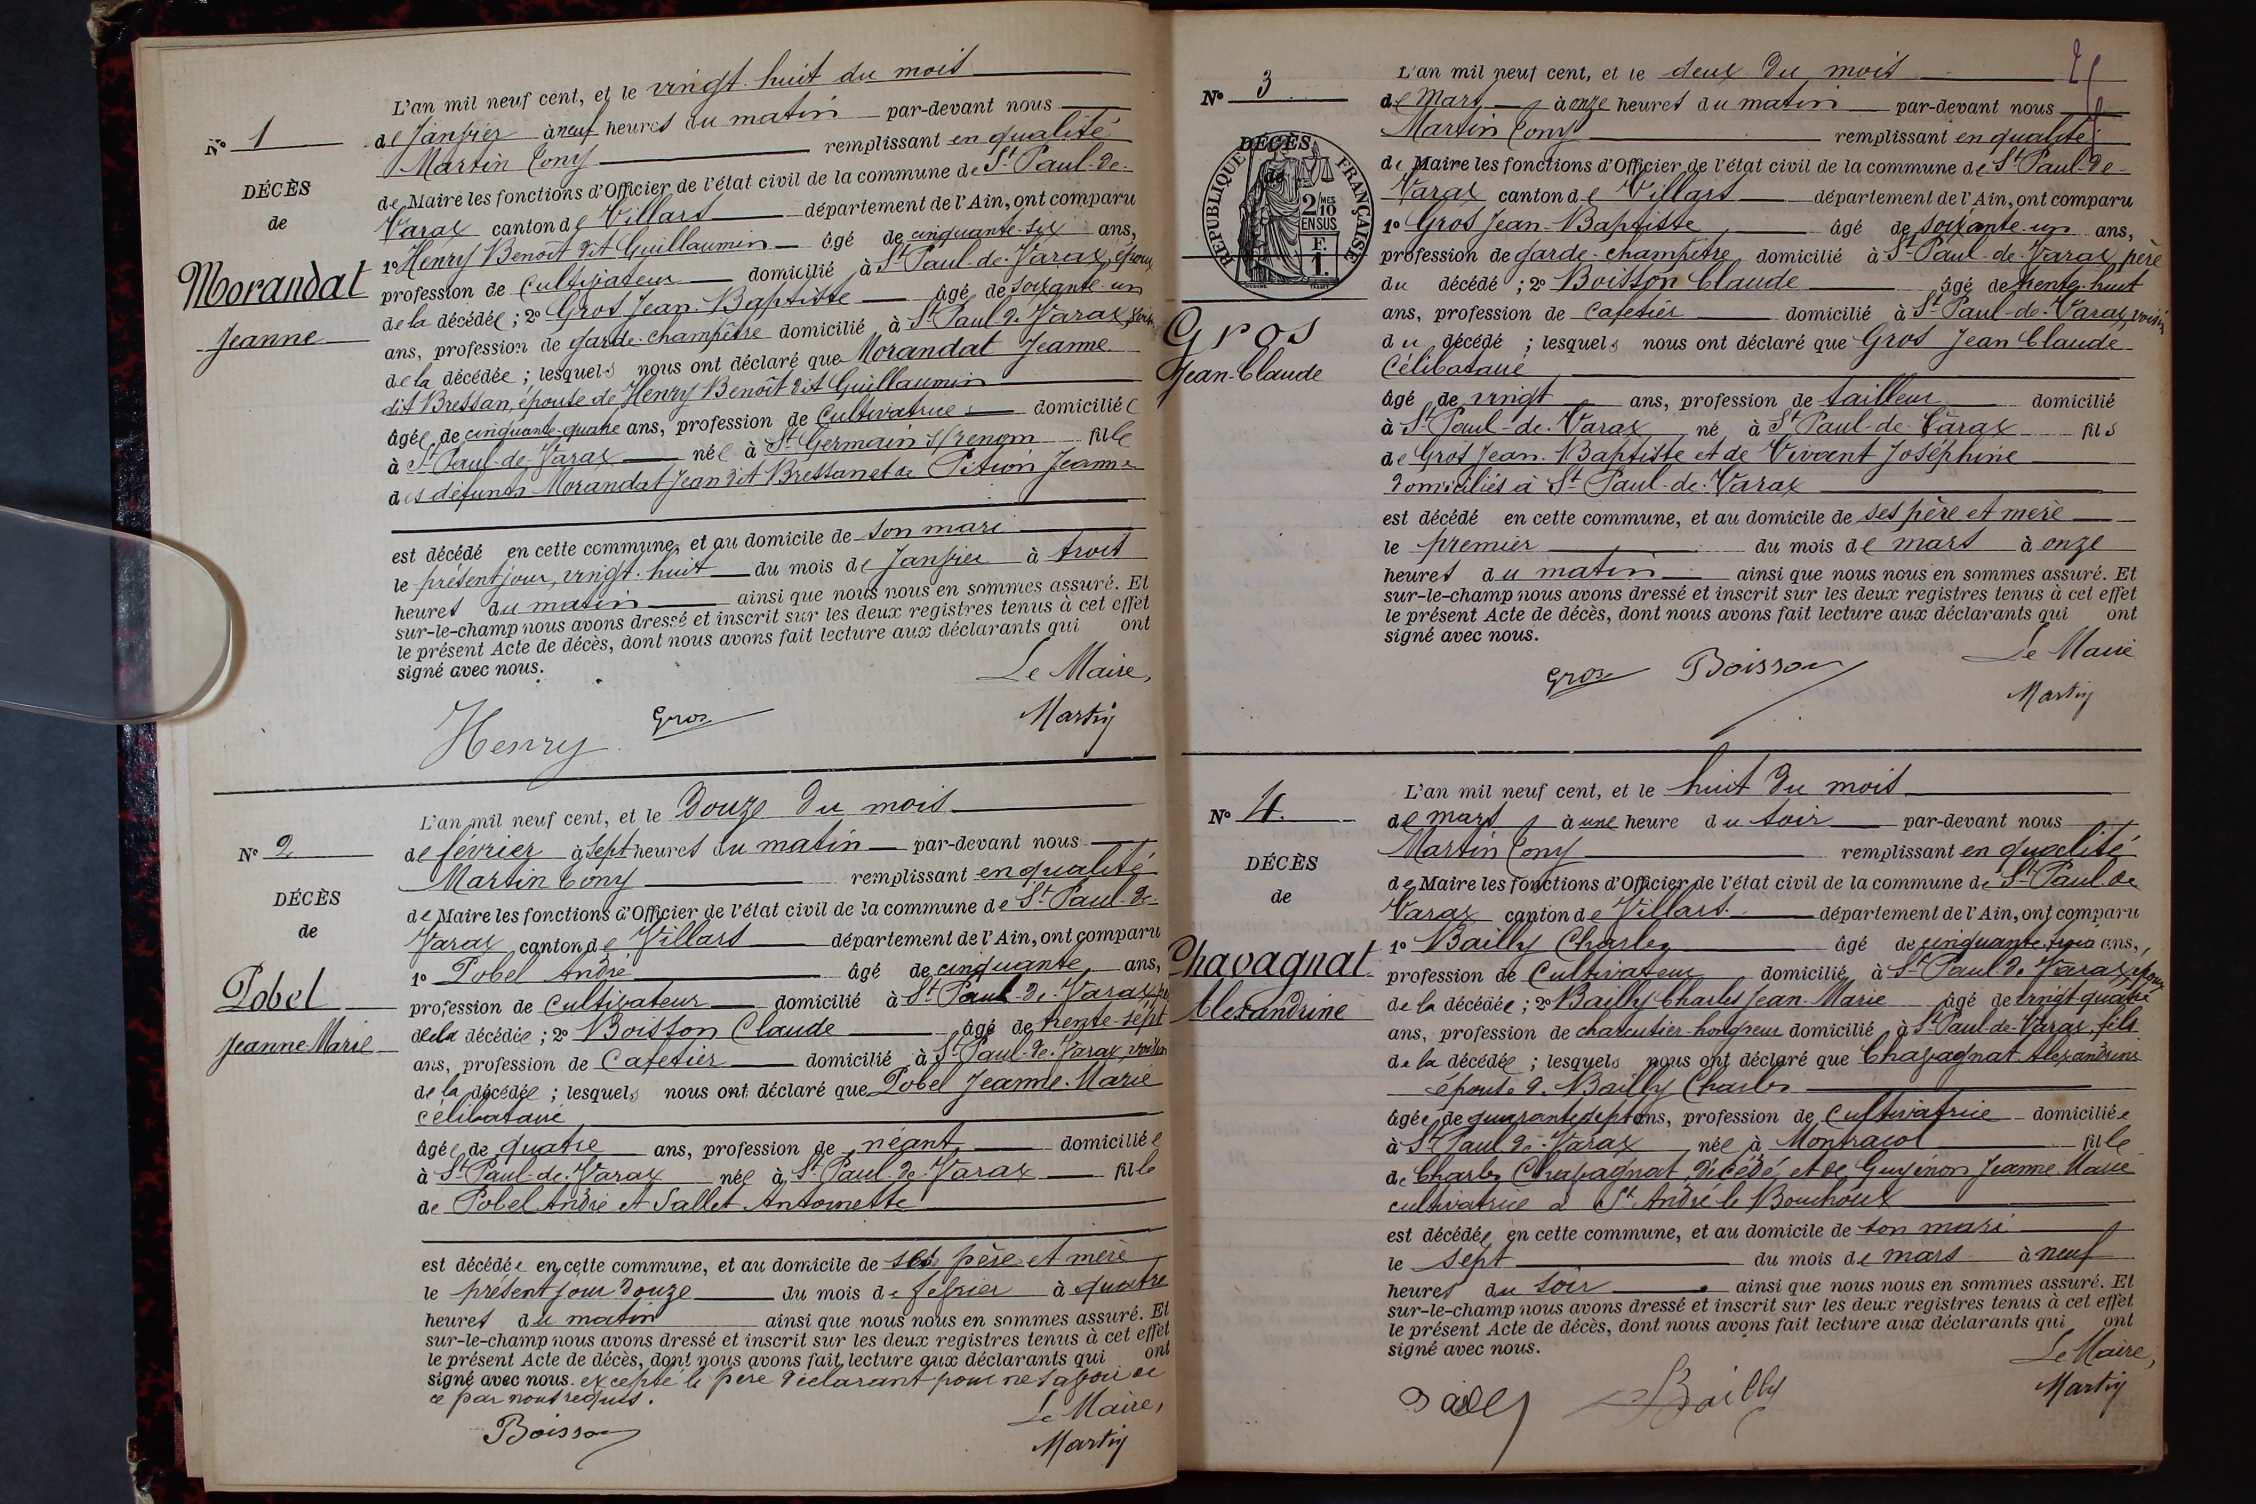 N° 1
DÉCÈS
de
Morandat
Jeanne
L'an mil neuf cent, et le vingt huit du mois
de Janvier à neuf heures du matin par-devant nous
Martin Tony remplissant en qualité
de Maire les fonctions d'Officier de l'état civil de la commune de St Paul-de-
Varax canton de Villars département de l'Ain, ont comparu
1° Henry Benoît dit Guillaumin âgé de cinquante-six ans,
profession de Cultivateur domicilié à St Paul-de-Varax, époux
de la décédée ; 2° Gros Jean-Baptiste âgé de soixante-un
ans, profession de garde-champêtre domicilié à St Paul-de-Varax,
de la décédée ; lesquels nous ont déclaré que Morandat Jeanne
dit Bressan, épouse de Henry Benoît dit Guillaumin
âgée de cinquante-quatre ans, profession de Cultivatrice domiciliée
à St Paul-de-Varax née à St Germain s/renom fille
des défunts Morandat Jean dit Bressan et de Pition Jeanne
est décédé en cette commune, et au domicile de son mari
le présent jour, vingt-huit du mois de Janvier à trois
heures du matin ainsi que nous nous en sommes assuré. Et
sur-le-champ nous avons dressé et inscrit sur les deux registres tenus à cet effet
le présent Acte de décès, dont nous avons fait lecture aux déclarants qui ont
signé avec nous.
Le Maire,
Henry Gros Martin
N° 2
DÉCÈS
de
Pobel
Jeanne Marie
L'an mil neuf cent, et le douze du mois
de février à sept heures du matin par-devant nous
Martin Tony remplissant en qualité
de Maire les fonctions d'Officier de l'état civil de la commune de St Paul-de-
Varax canton de Villars département de l'Ain, ont comparu
1° Pobel André âgé de cinquante ans,
profession de Cultivateur domicilié à St Paul-de-Varax, père
de la décédée ; 2° Boisson Claude âgé de trente-sept
ans, profession de Cafetier domicilié à St Paul-de-Varax, voisin
de la décédée ; lesquels nous ont déclaré que Pobel Jeanne-Marie
célibataire
âgée de quatre ans, profession de néant domiciliée
à St Paul-de-Varax née à St Paul-de-Varax fille
de Pobel André et Sallet Antoinette
est décédée en cette commune, et au domicile de ses père et mère
le présent jour douze du mois de février à quatre
heures du matin ainsi que nous nous en sommes assuré. Et
sur-le-champ nous avons dressé et inscrit sur les deux registres tenus à cet effet
le présent Acte de décès, dont nous avons fait lecture aux déclarants qui ont
signé avec nous. excepté le père déclarant pour ne savoir de
ce par nous requis.
Le Maire,
Boisson Martin
N° 3
DÉCÈS
de
RÉPUBLIQUE FRANÇAISE
2/10 MES
EN SUS
F.
1.
Gros
Jean-Claude
L'an mil neuf cent, et le deux du mois
de Mars à onze heures du matin par-devant nous
Martin Tony remplissant en qualité
de Maire les fonctions d'Officier de l'état civil de la commune de St Paul-de-
Varax canton de Villars département de l'Ain, ont comparu
1° Gros Jean-Baptiste âgé de soixante-un ans,
profession de garde-champêtre domicilié à St Paul-de-Varax, père
du décédé ; 2° Boisson Claude âgé de trente-huit
ans, profession de Cafetier domicilié à St Paul-de-Varax, voisin
du décédé ; lesquels nous ont déclaré que Gros Jean Claude
Célibataire
âgé de vingt ans, profession de tailleur domicilié
à St Paul-de-Varax né à St Paul-de-Varax fils
de Gros Jean-Baptiste et de Vivant Joséphine
domiciliés à St Paul-de-Varax
est décédé en cette commune, et au domicile de ses père et mère
le premier du mois de mars à onze
heures du matin ainsi que nous nous en sommes assuré. Et
sur-le-champ nous avons dressé et inscrit sur les deux registres tenus à cet effet
le présent Acte de décès, dont nous avons fait lecture aux déclarants qui ont
signé avec nous.
Le Maire
Gros Boisson Martin
N° 4.
DÉCÈS
de
Chavagnat
Alexandrine
L'an mil neuf cent, et le huit du mois
de mars à une heure du soir par-devant nous
Martin Tony remplissant en qualité
de Maire les fonctions d'Officier de l'état civil de la commune de St Paul de
Varax canton de Villars département de l'Ain, ont comparu
1° Bailly Charles âgé de cinquante-trois ans,
profession de Cultivateur domicilié à St Paul-de-Varax, époux
de la décédée ; 2° Bailly Charles Jean-Marie âgé de vingt quatre
ans, profession de charcutier-hongreur domicilié à St Paul-de-Varax, fils
de la décédée ; lesquels nous ont déclaré que Chavagnat Alexandrine
épouse de Bailly Charles
âgée de quarante sept ans, profession de Cultivatrice domiciliée
à St Paul-de-Varax née à Montracol fille
de Charles Chavagnat, décédé et de Guyénon Jeanne Marie
cultivatrice à St André le Bouchoux
est décédée en cette commune, et au domicile de son mari
le sept du mois de mars à neuf
heures du soir ainsi que nous nous en sommes assuré. Et
sur-le-champ nous avons dressé et inscrit sur les deux registres tenus à cet effet
le présent Acte de décès, dont nous avons fait lecture aux déclarants qui ont
signé avec nous.
Le Maire,
Bailly Bailly Martin